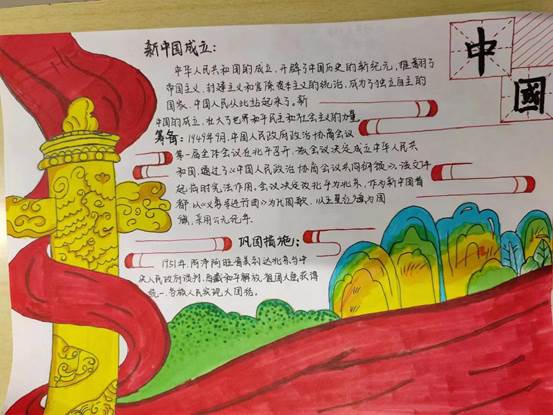 中
國
新中国成立:
中华人民共和国的成立,开辟了中国历史的新纪元,推翻了
帝国主义,封建主义和官僚资本主义的统治,成为了独立自主的
国家,中国人民从此站起来了,新
中国的成立,壮大了世界和平民主和社会主义的力量
筹备:1949年9月,中国人民政府政治协商会议
第一届全体会议在北平召开,该会议决定成立中华人民共
和国,通过了《中国人民政治协商会议共同纲领》,该文件
起临时宪法作用,会议决定改北平为北京,作为新中国首
都以《义勇军进行曲》为代国歌,以五星红旗为国
旗,采用公元纪年.
巩固措施:
1951年,阿沛阿旺晋美到达北京与中
央人民政府谈判,西藏和平解放,祖国大陆获得
统一,各族人民实现大团结。